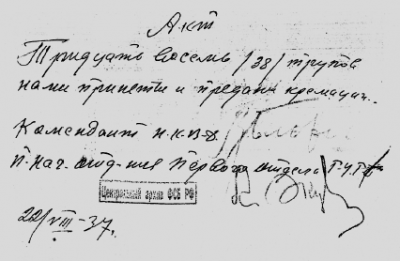 Акт
Тридцать восемь /38/ трупов
нами приняты и преданы кремации.
Комендант н.к.в.д.
П. нач. отд-ния Первого отдела Г.У.Г.Б.
Центральный архив ФСБ РФ
22/VIII-37.